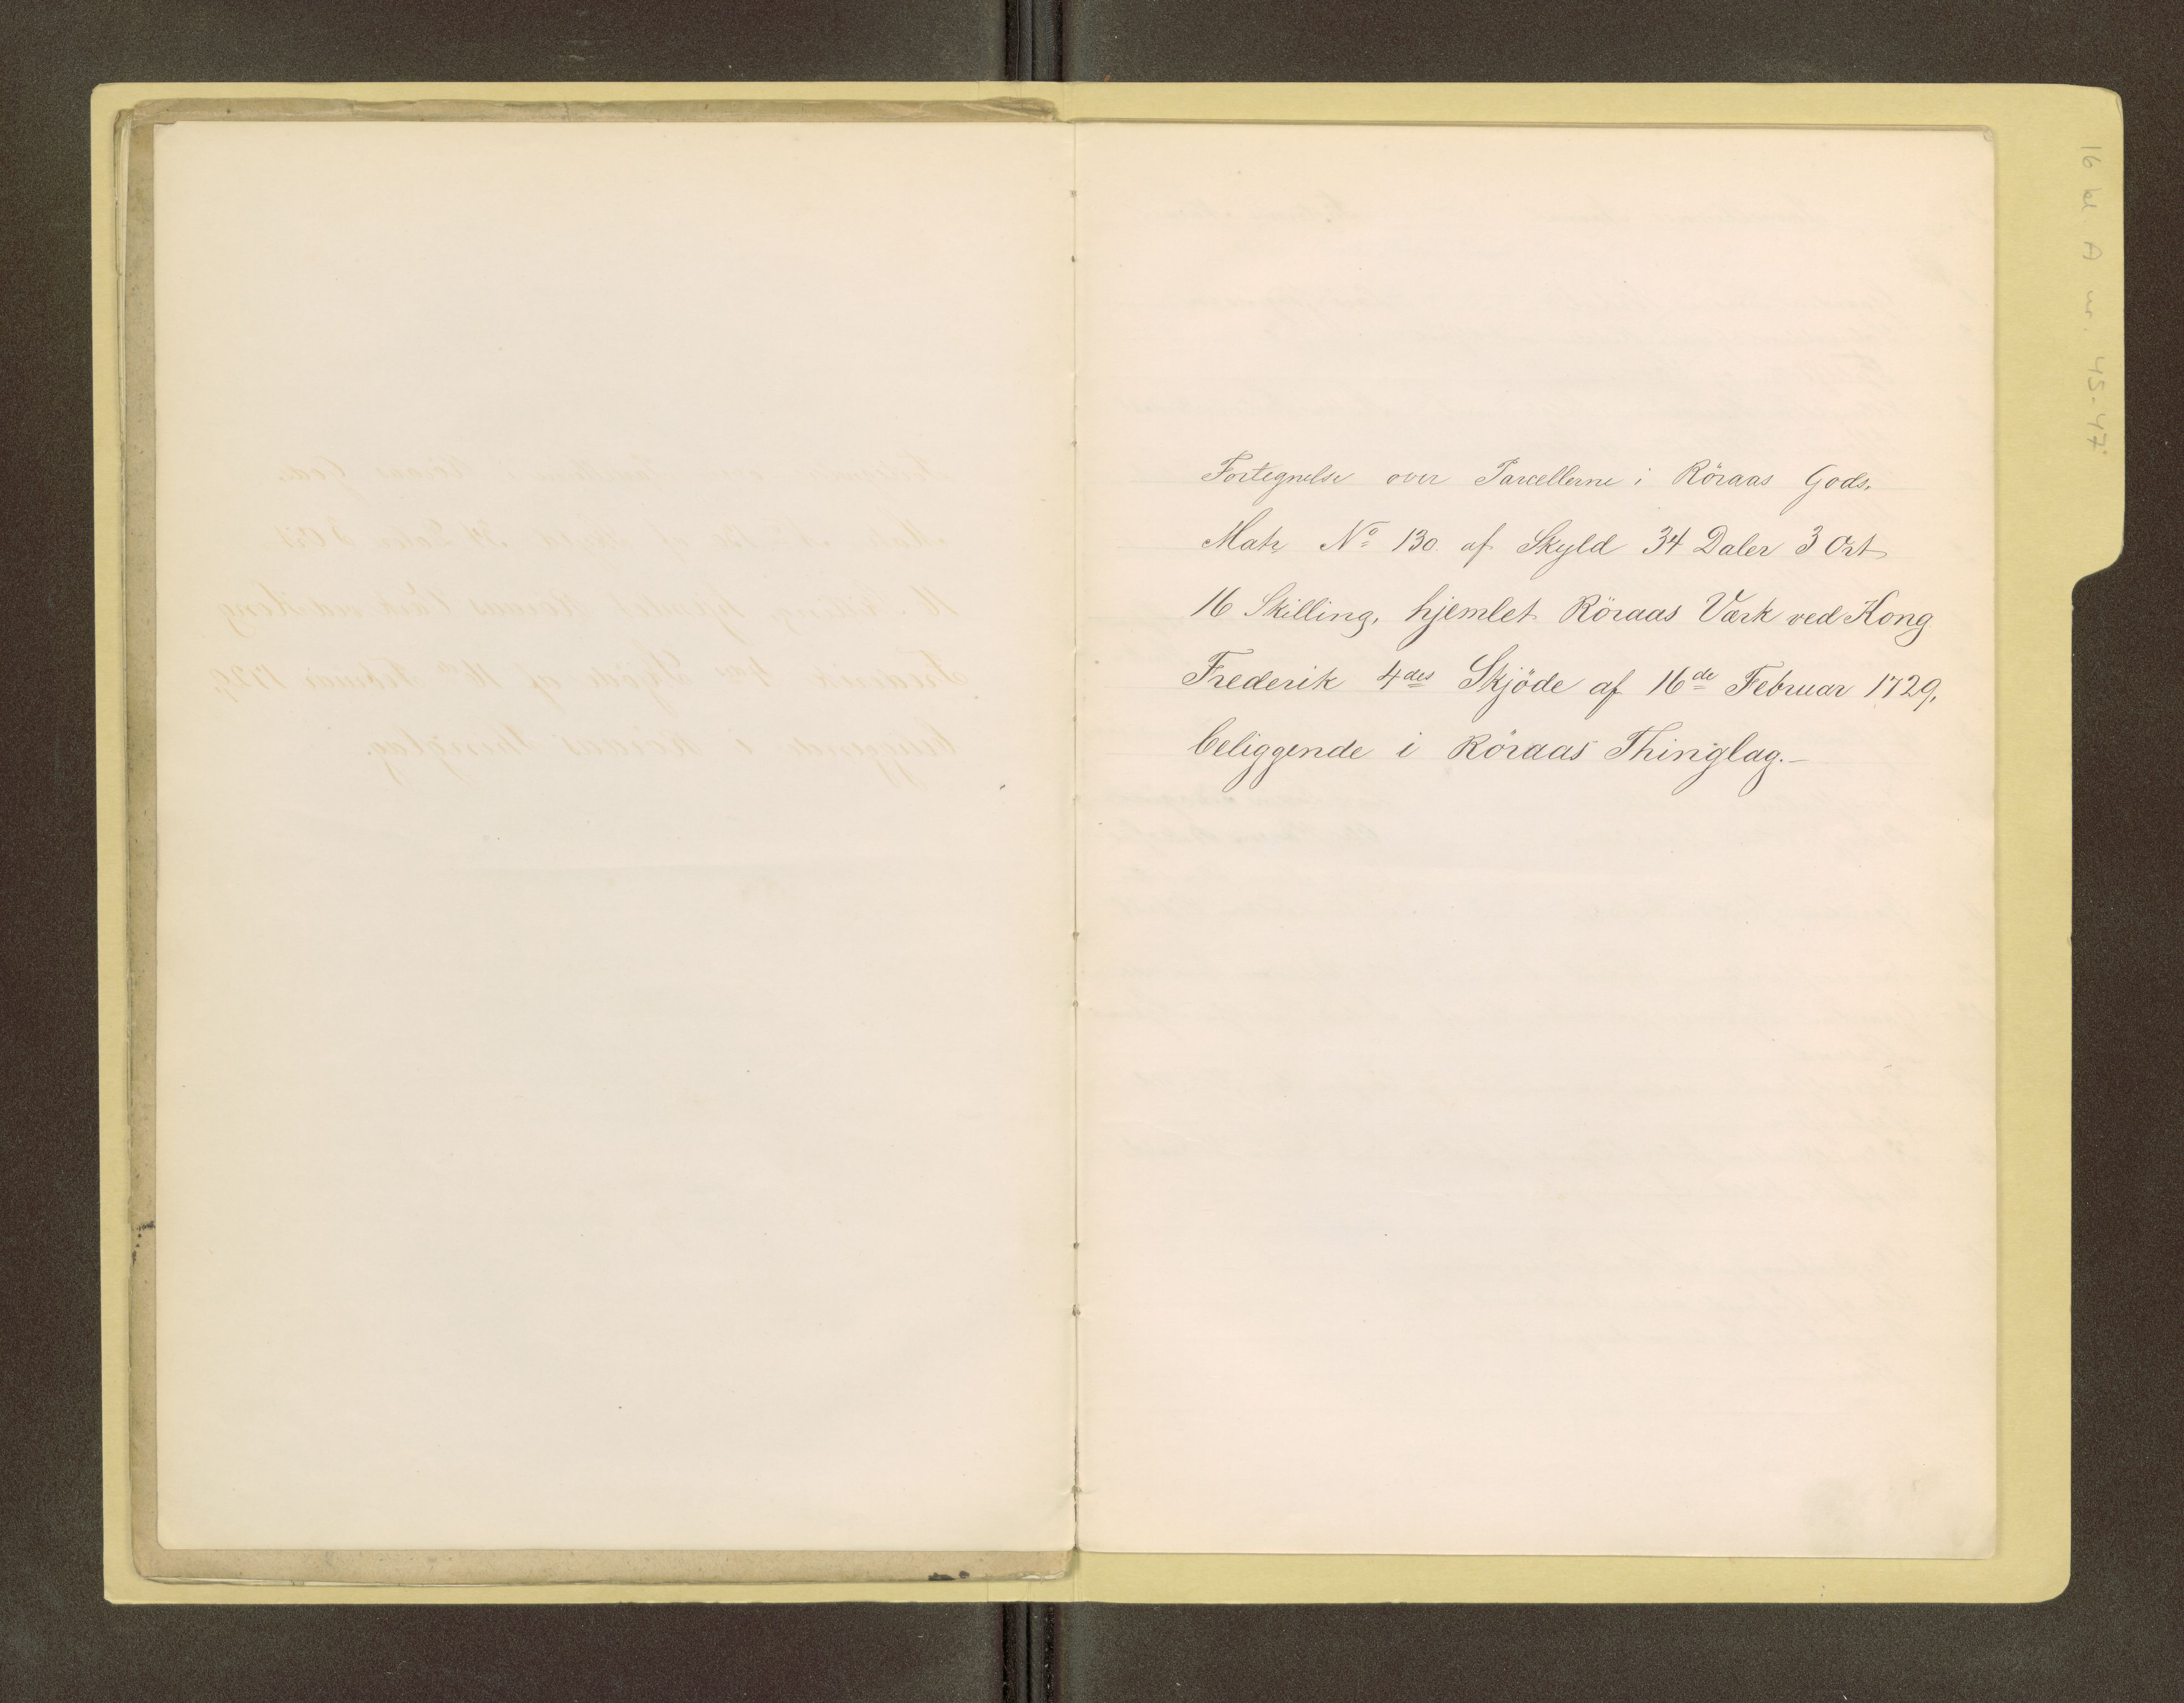 Fortegnelse over Parcellerne i Röraas Gods,
Matr No 130 af Skyld 34 Daler 3 Ort
16 Skilling, hjemlet Röraas Værk ved Kong
Frederik 4des Skjöde af 16de Februar 1729,
beliggende i Röraas Thinglag.–
16 kl A nr. 45-47